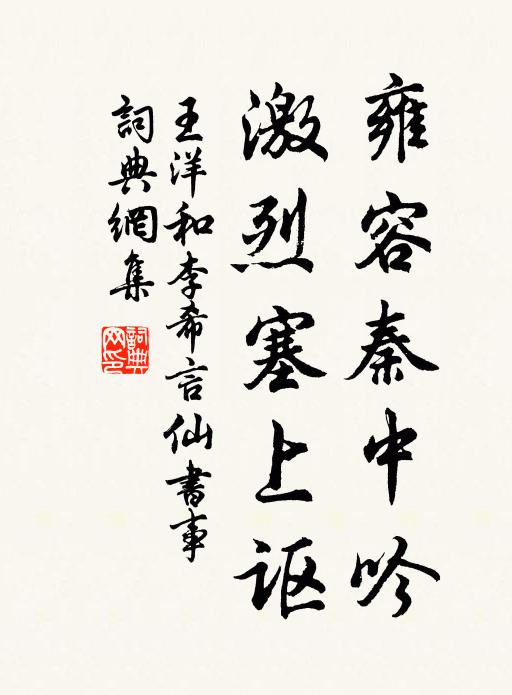 雍容秦中吟
激烈塞上讴
王洋和李希言仙書事
詞典網集
詞典网印